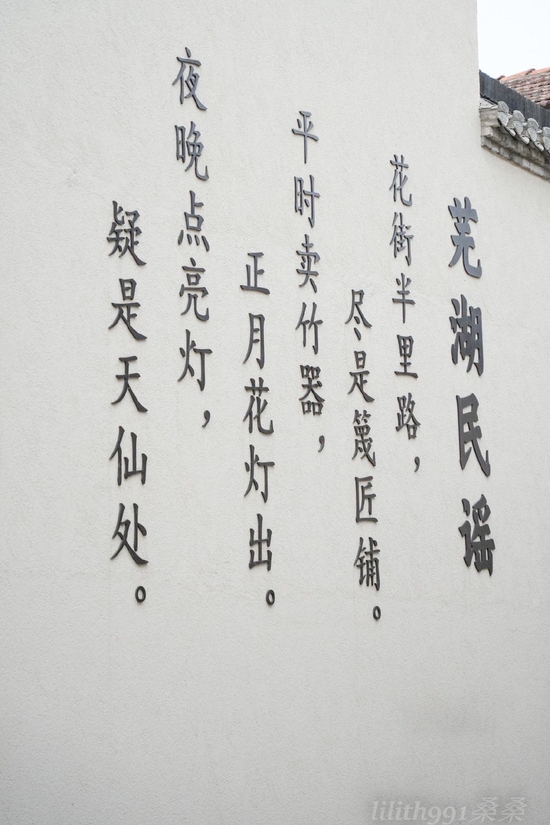 芜湖民谣
花街半里路，
尽是篾匠铺。
平时卖竹器，
正月花灯出。
夜晚点亮灯，
疑是天仙处。
lilith991桑桑